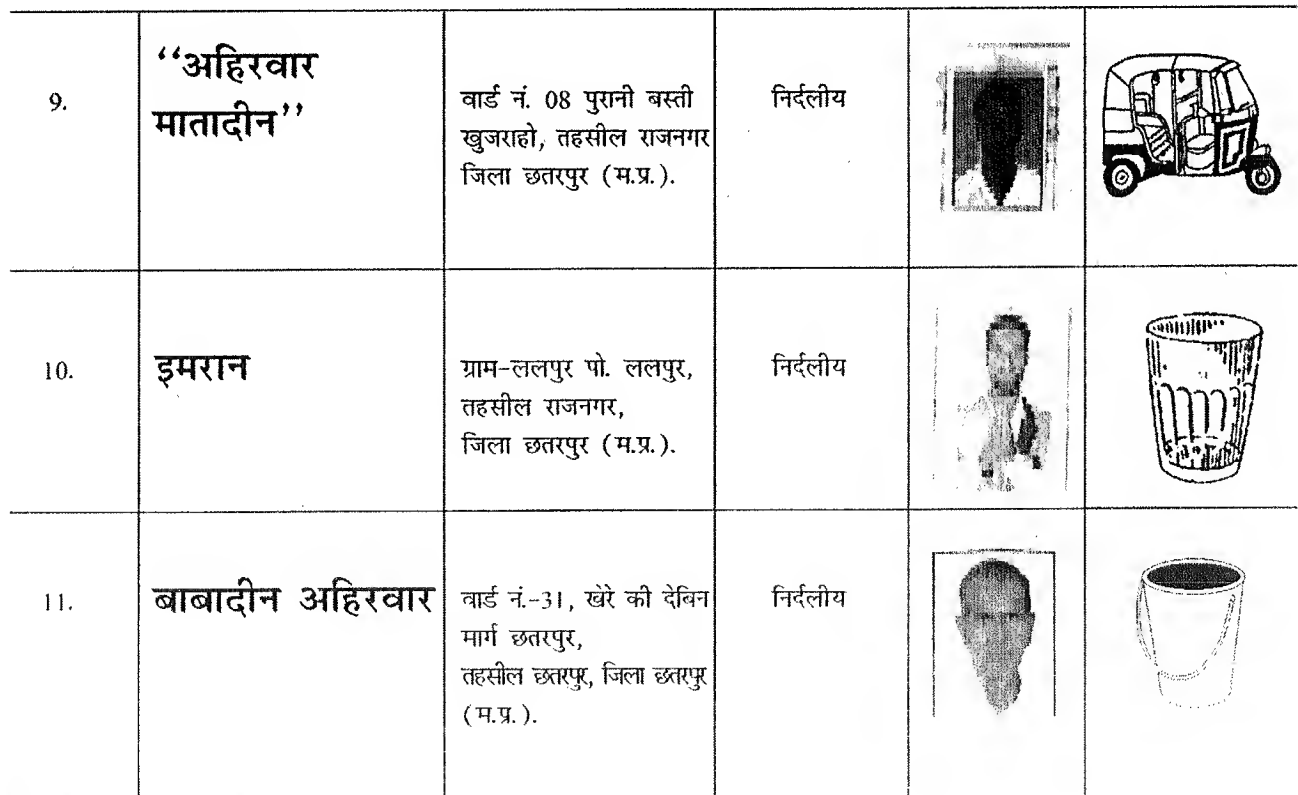 9.
‘‘अहिरवार
मातादीन’’
वार्ड नं. 08 पुरानी बस्ती
खुजराहो, तहसील राजनगर
जिला छतरपुर (म.प्र.).
निर्दलीय
10.
इमरान
ग्राम-ललपुर पो. ललपुर,
तहसील राजनगर,
जिला छतरपुर (म.प्र.).
निर्दलीय
11.
बाबादीन अहिरवार
वार्ड नं.-31, खेरे की देबिन
मार्ग छतरपुर,
तहसील छतरपुर, जिला छतरपुर
(म.प्र.).
निर्दलीय